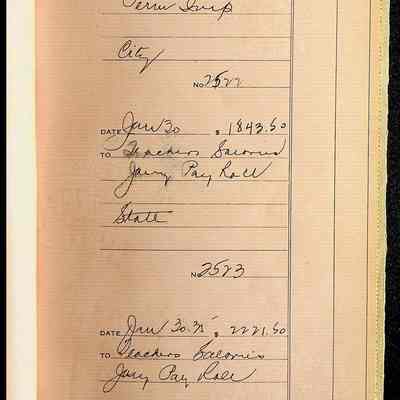 City
No 2522
DATE Jan 30 $ 1843.50
TO Teachers Salaries
Jany Pay Roll
State
No 2523
DATE Jan 30.35 $ 2221.50
TO Teachers Salaries
Jany Pay Roll